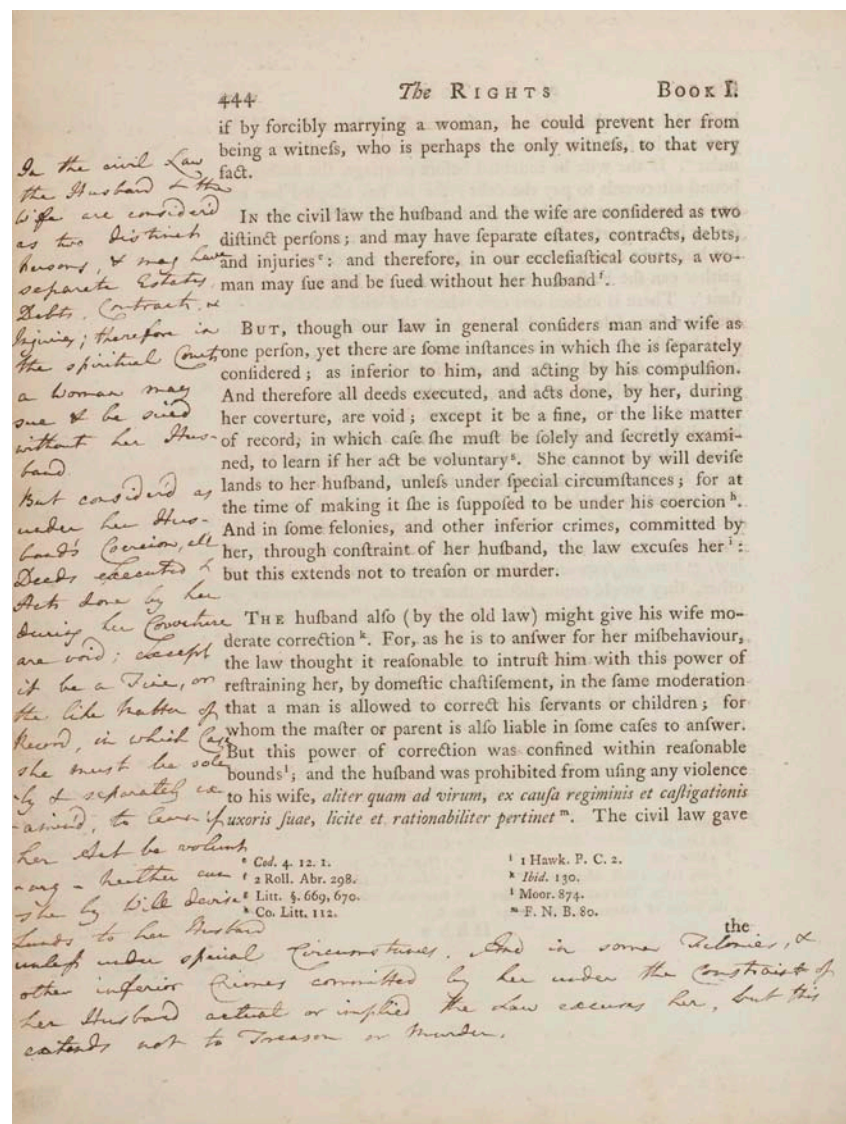 444 The RIGHTS BOOK I.
if by forcibly marrying a woman, he could prevent her from
being a witneſs, who is perhaps the only witneſs, to that very
fact.
IN the civil law the huſband and the wife are conſidered as two
diſtinct perſons; and may have ſeparate eſtates, contracts, debts,
and injuries e: and therefore, in our eccleſiaſtical courts, a wo-
man may ſue and be ſued without her huſband f.
BUT, though our law in general conſiders man and wife as
one perſon, yet there are ſome inſtances in which ſhe is ſeparately
conſidered; as inferior to him, and acting by his compulſion.
And therefore all deeds executed, and acts done, by her, during
her coverture, are void; except it be a fine, or the like matter
of record, in which caſe ſhe muſt be ſolely and ſecretly exami-
ned, to learn if her act be voluntary g. She cannot by will deviſe
lands to her huſband, unleſs under ſpecial circumſtances; for at
the time of making it ſhe is ſuppoſed to be under his coercion h.
And in ſome felonies, and other inferior crimes, committed by
her, through conſtraint of her huſband, the law excuſes her i:
but this extends not to treaſon or murder.
THE huſband alſo (by the old law) might give his wife mo-
derate correction k. For, as he is to anſwer for her miſbehaviour,
the law thought it reaſonable to intruſt him with this power of
reſtraining her, by domeſtic chaſtiſement, in the ſame moderation
that a man is allowed to correct his ſervants or children; for
whom the maſter or parent is alſo liable in ſome caſes to anſwer.
But this power of correction was confined within reaſonable
bounds l; and the huſband was prohibited from uſing any violence
to his wife, aliter quam ad virum, ex cauſa regiminis et caſtigationis
uxoris ſuae, licite et rationabiliter pertinet m. The civil law gave
e Cod. 4. 12. 1.
f 2 Roll. Abr. 298.
g Litt. §. 669, 670.
h Co. Litt. 112.
i 1 Hawk. P. C. 2.
k Ibid. 130.
l Moor. 874.
m F. N. B. 80.
the
In the civil Law
the Husband & the
Wife are considerd
as two distinct
persons, & may have
separate Estates,
Debts, Contracts, &
Injuries; therefore in
the spiritual Court
a Woman may
sue & be sued
without her Hus-
band.
But consider'd as
under her Hus-
band's Coercion, all
Deeds executed &
Acts done by her
during her Coverture
are void; except
it be a Fine, or
the like Matter of
Record, in which Case
she must be sole
-ly & separately ex
-amin'd, to learn if
her Act be volunt
-ary - neither can
she by Will devise
Lands to her Husband
unless under special Circumstances. And in some Felonies, &
other inferior Crimes committed by her under the Constraint of
her Husband actual or implied the Law excuses her, but this
extends not to Treason or Murder.